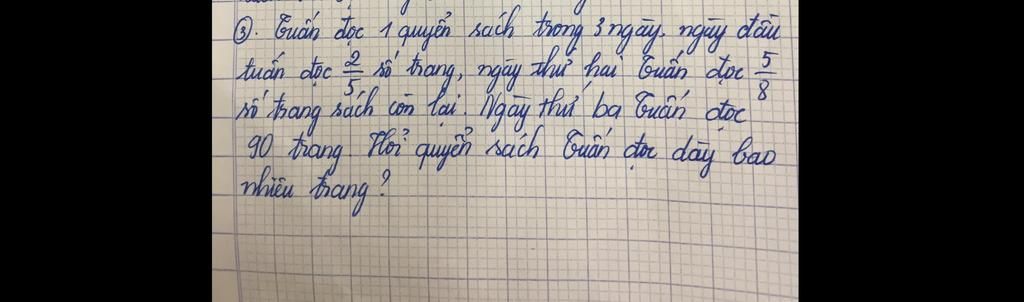 ③. Tuấn đọc 1 quyển sách trong 3 ngày. ngày đầu
tuấn đọc 2/5 số trang, ngày thứ hai Tuấn đọc 5/8
số trang sách còn lại. Ngày thứ ba Tuấn đọc
90 trang. Hỏi quyển sách Tuấn đọc dày bao
nhiêu trang?